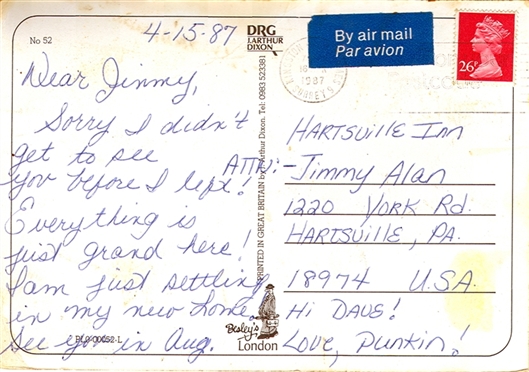 No 52
4-15-87
DRG
J.ARTHUR
DIXON
By air mail
Par avion
26P
1987
Dear Jimmy,
Sorry I didn't
get to see
you before I left!
Everything is
just grand here!
I am just settling
in my new home.
See you in Aug.
PRINTED IN GREAT BRITAIN by J. Arthur Dixon. Tel: 0983 523381
HARTSVILLE INN
ATTN:-Jimmy Alan
1220 YORK Rd.
HARTSVILLE, PA.
18974 U.S.A.
Hi DAVE!
Love, Punkin!
Besley's
London